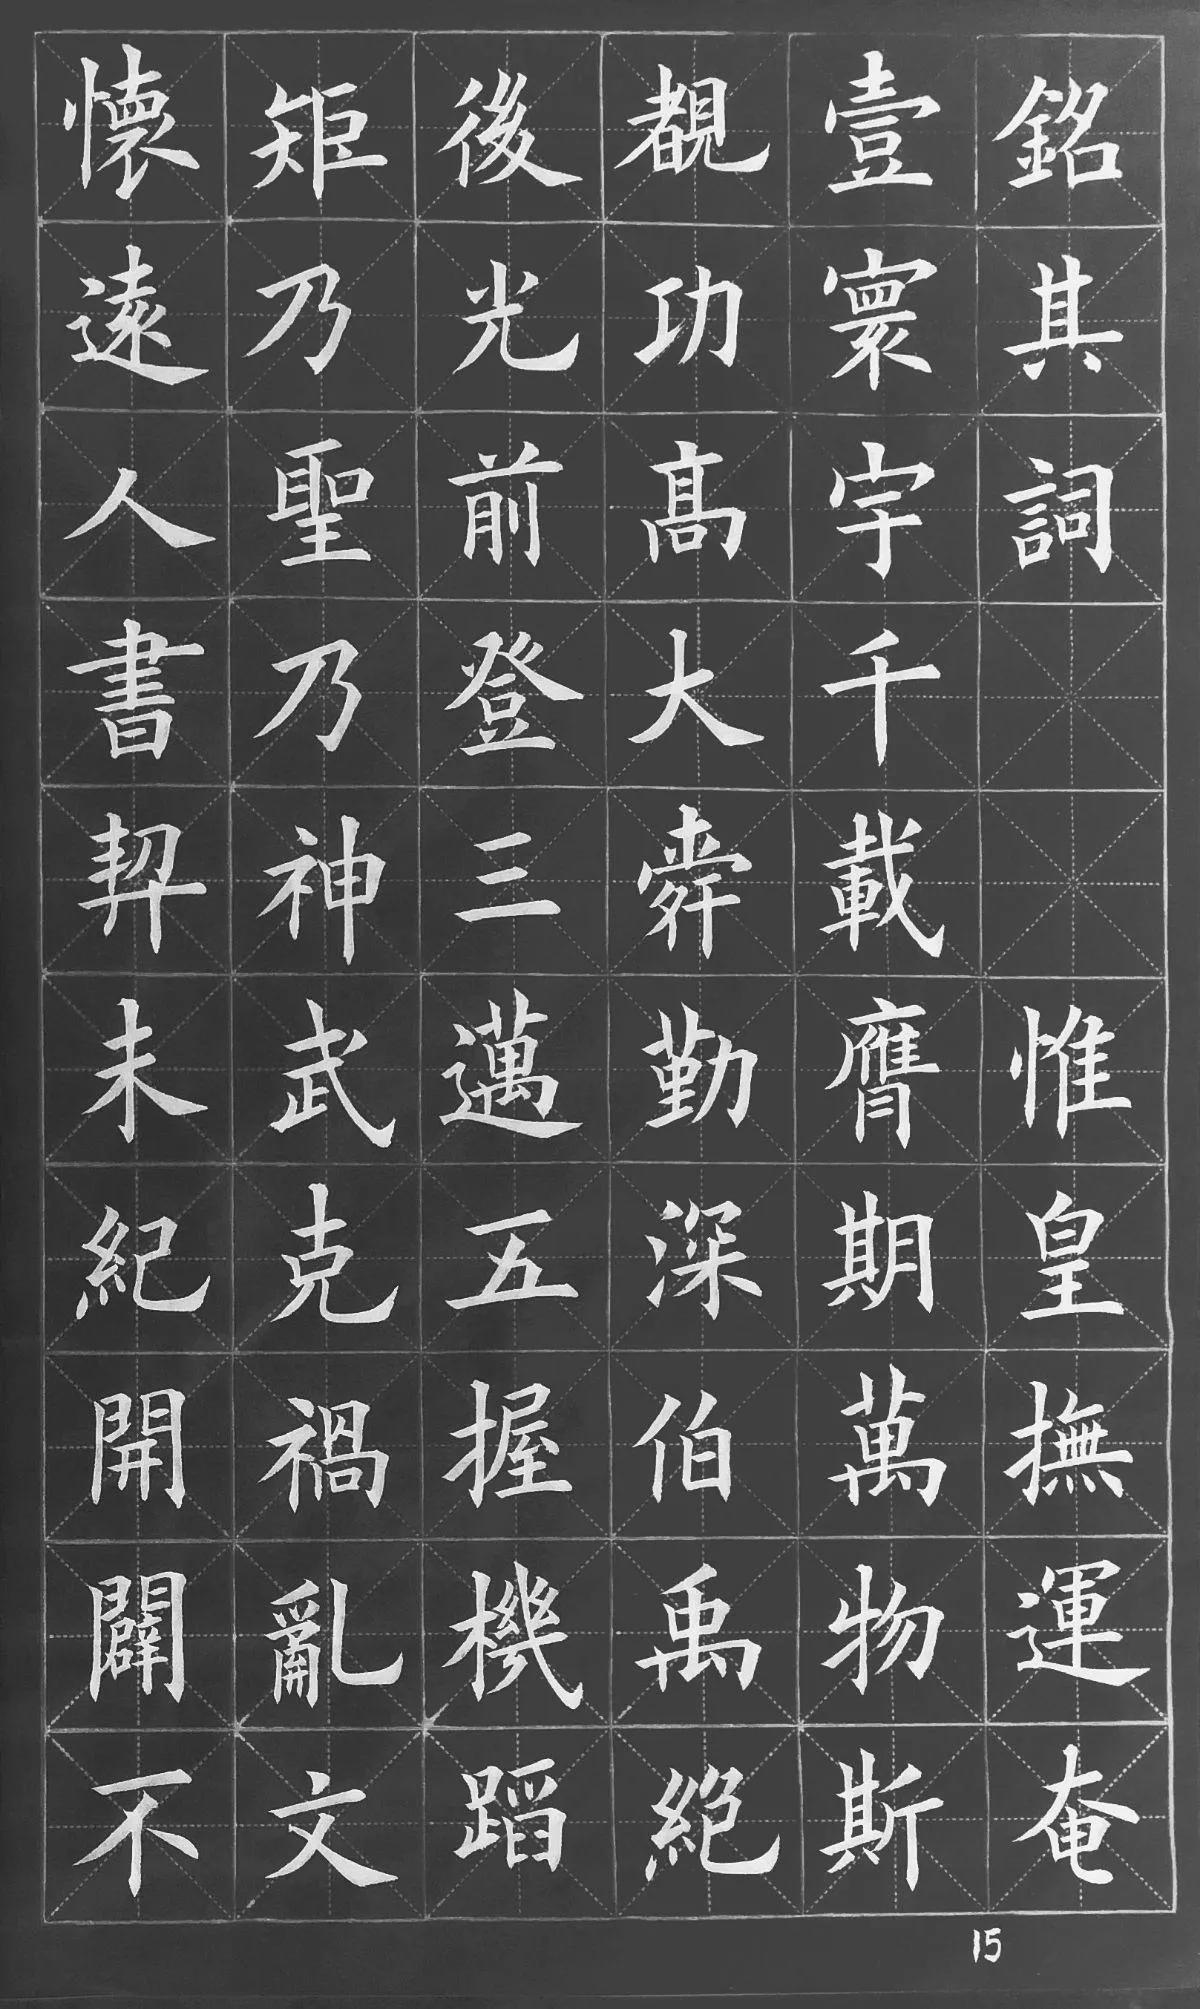 銘其詞　　惟皇撫運奄
壹寰宇千載膺期萬物斯
覩功高大舜勤深伯禹絶
後光前登三邁五握機蹈
矩乃聖乃神武克禍亂文
懷遠人書契未紀開闢不
15